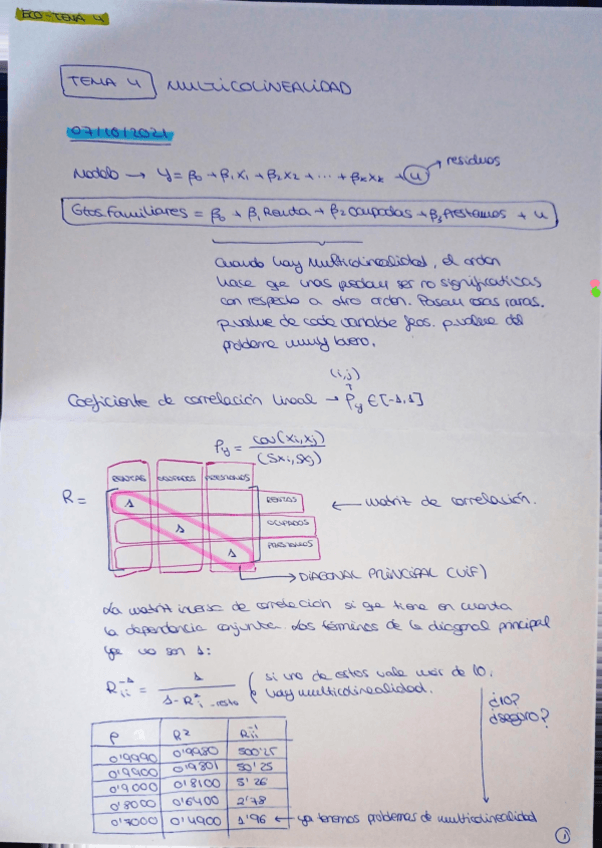 ECO-TEMA 4
TEMA 4 MULTICOLINEALIDAD
07/10/2021
Modelo → Y = β0 + β1X1 + β2X2 + ... + βkXk + u → residuos
Gtos.Familiares = β0 + β1 Renta + β2 Ocupados + β3 Préstamos + u
Cuando hay Multicolinealidad, el orden
hace que unas puedan ser no significativas
con respecto a otro orden. Pasan cosas raras.
p.value de cada variable feos. p.value del
problema muy bueno.
(i,j)
Coeficiente de correlación lineal → ρy ∈ [-1,1]
ρy = cov(xi,xj) / (Sxi,Sxj)
RENTAS OCUPADOS PRÉSTAMOS
R = 1 RENTAS ← Matriz de correlación.
1 OCUPADOS
1 PRÉSTAMOS
→ DIAGONAL PRINCIPAL (VIF)
La matriz inversa de correlación si que tiene en cuenta
la dependencia conjunta. Los términos de la diagonal principal
que no son 1:
Rii⁻¹ = 1 / 1-R²i-resto ( si uno de estos vale más de 10,
hay multicolinealidad.
¿10?
¿seguro?
ρ R² Rii⁻¹
0'9990 0'9980 500'25
0'9900 0'9801 50'25
0'9000 0'8100 5'26
0'8000 0'6400 2'78
0'7000 0'4900 1'96 ← ya tenemos problemas de multicolinealidad
1